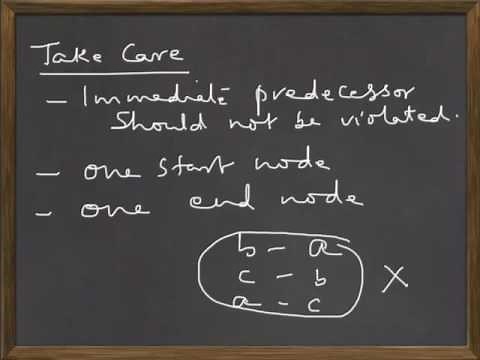 Take Care
- Immediate predecessor
Should not be violated.
- one start node
- one end node
b - a
c - b
a - c
X